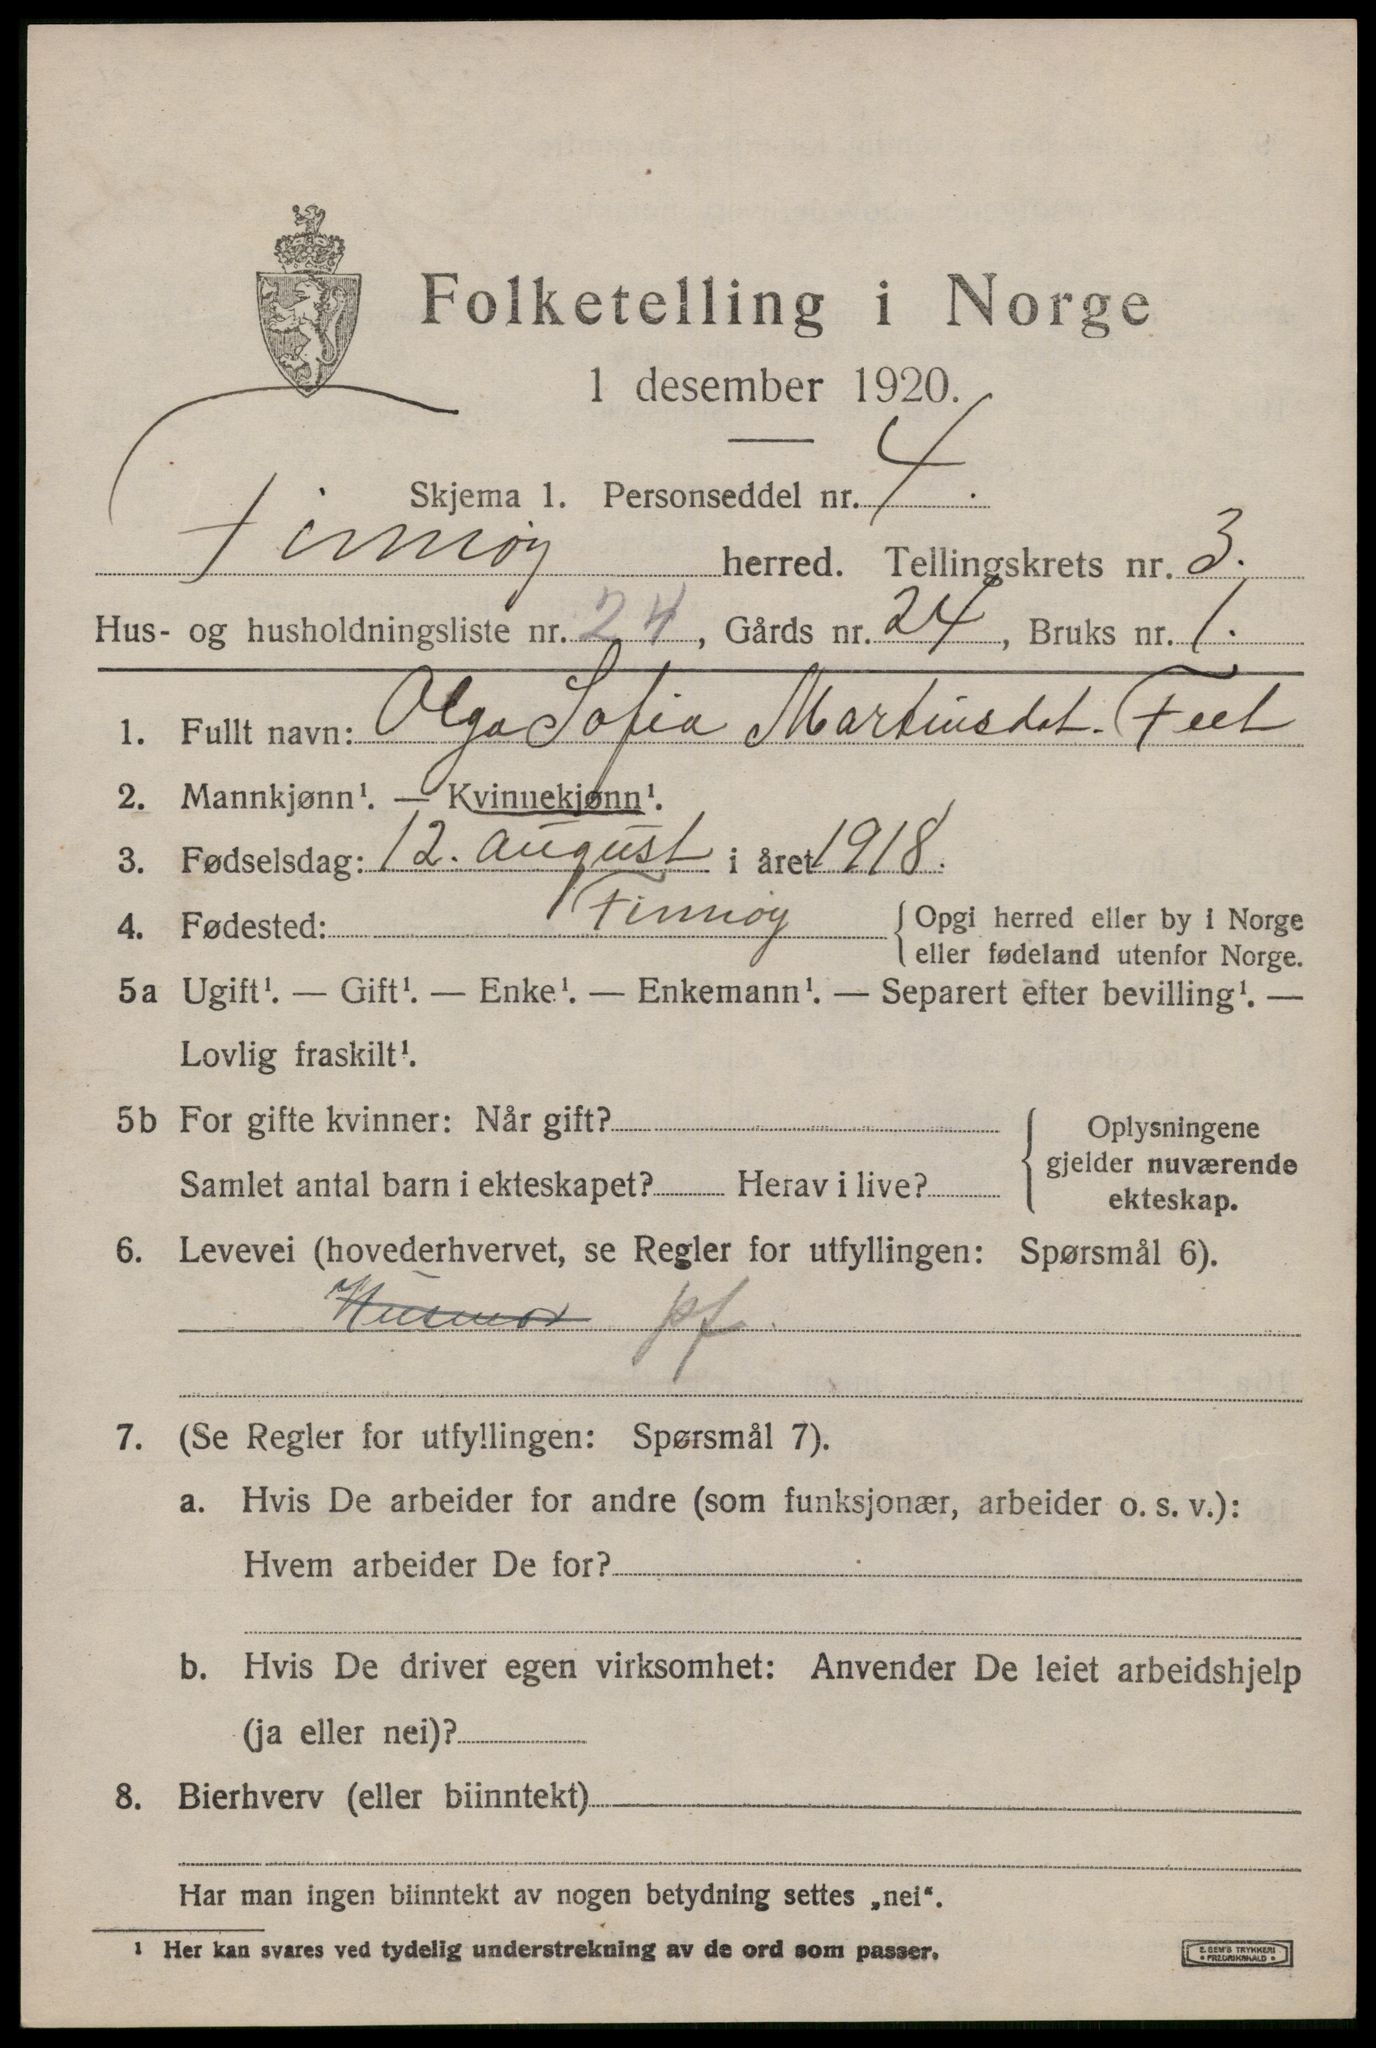 Folketelling i Norge
1 desember 1920.
Skjema 1. Personseddel nr. 4.
Finnøy herred. Tellingskrets nr. 3.
Hus- og husholdningsliste nr. 24, Gårds nr. 24, Bruks nr. 1.
1. Fullt navn: Olga Sofia Martinsdat. Feet
2. Mannkjønn¹. — Kvinnekjønn¹.
3. Fødselsdag: 12. august i året 1918.
4. Fødested: Finnøy { Opgi herred eller by i Norge
eller fødeland utenfor Norge.
5a Ugift¹. — Gift¹. — Enke¹. — Enkemann¹. — Separert efter bevilling¹. —
Lovlig fraskilt¹.
5b For gifte kvinner: Når gift?
Samlet antal barn i ekteskapet? Herav i live?
{ Oplysningene
gjelder nuværende
ekteskap.
6. Levevei (hovederhvervet, se Regler for utfyllingen: Spørsmål 6).
Husmor pf.
7. (Se Regler for utfyllingen: Spørsmål 7).
a. Hvis De arbeider for andre (som funksjonær, arbeider o. s. v.):
Hvem arbeider De for?
b. Hvis De driver egen virksomhet: Anvender De leiet arbeidshjelp
(ja eller nei)?
8. Bierhverv (eller biinntekt)
Har man ingen biinntekt av nogen betydning settes „nei“.
¹ Her kan svares ved tydelig understrekning av de ord som passer.
E. SEM'S TRYKKERI
• FREDRIKSHALD •